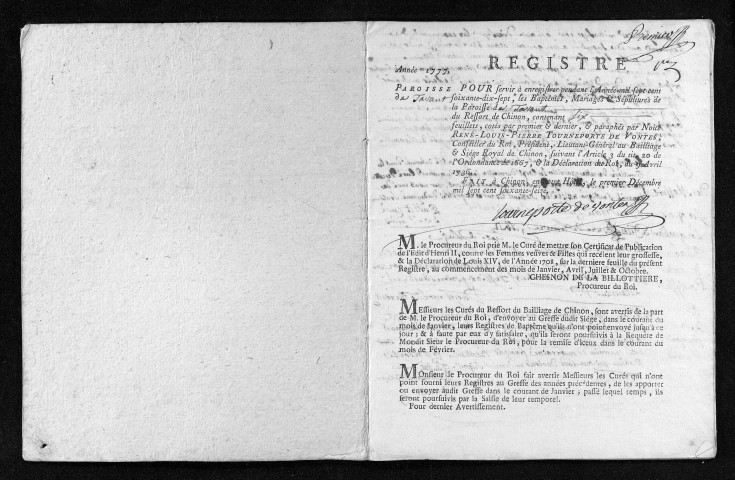 Premier
REGISTRE
Année 1777.
PAROISSE POUR servir à enregistrer pendant l'Année mil sept cent
de Tavant soixante-dix-sept, les Baptêmes, Mariages & Sépultures de
la Paroisse de Tavant
du Ressort de Chinon, contenant six
feuillets, cotés par premier & dernier, & paraphés par Nous
RENÉ-LOUIS-PIERRE TOURNEPORTE DE VONTES,
Conseiller du Roi, Président, Lieutant-Général au Bailliage
& Siége Royal de Chinon, suivant l'Article 3 du tit. 20 de
l'Ordonnance de 1667, & la Déclaration du Roi, du 9 Avril
1736.
FAIT à Chinon, en notre Hôtel, le premier Décembre
mil sept cent soixante-seize.
Tourneporte de Vontes
M. le Procureur du Roi prie M. le Curé de mettre son Certificat de Publication
de l'Edit d'Henri II, contre les Femmes veuves & Filles qui récelent leur grossesse,
& la Déclaration de Louis XIV, de l'Année 1708, sur la derniere feuille du présent
Registre, au commencement des mois de Janvier, Avril, Juillet & Octobre.
CHESNON DE LA BILLOTTIERE,
Procureur du Roi.
MEssieurs les Curés du Ressort du Bailliage de Chinon, sont avertis de la part
de M. le Procureur du Roi, d'envoyer au Greffe dudit Siége, dans le courant du
mois de Janvier, leurs Registres de Baptême qu'ils n'ont point envoyé jusqu'à ce
jour; & à faute par eux d'y satisfaire, qu'ils seront poursuivis à la Requête de
Monsieur le Procureur du Roi, pour la remise d'iceux dans le courant du
mois de Février.
MOnsieur le Procureur du Roi fait avertir Messieurs les Curés qui n'ont
point fourni leurs Registres au Greffe des années précédentes, de les apporter
ou envoyer audit Greffe dans le courant de Janvier; passé lequel temps, ils
seront poursuivis par la Saisie de leur temporel.
Pour dernier Avertissement.